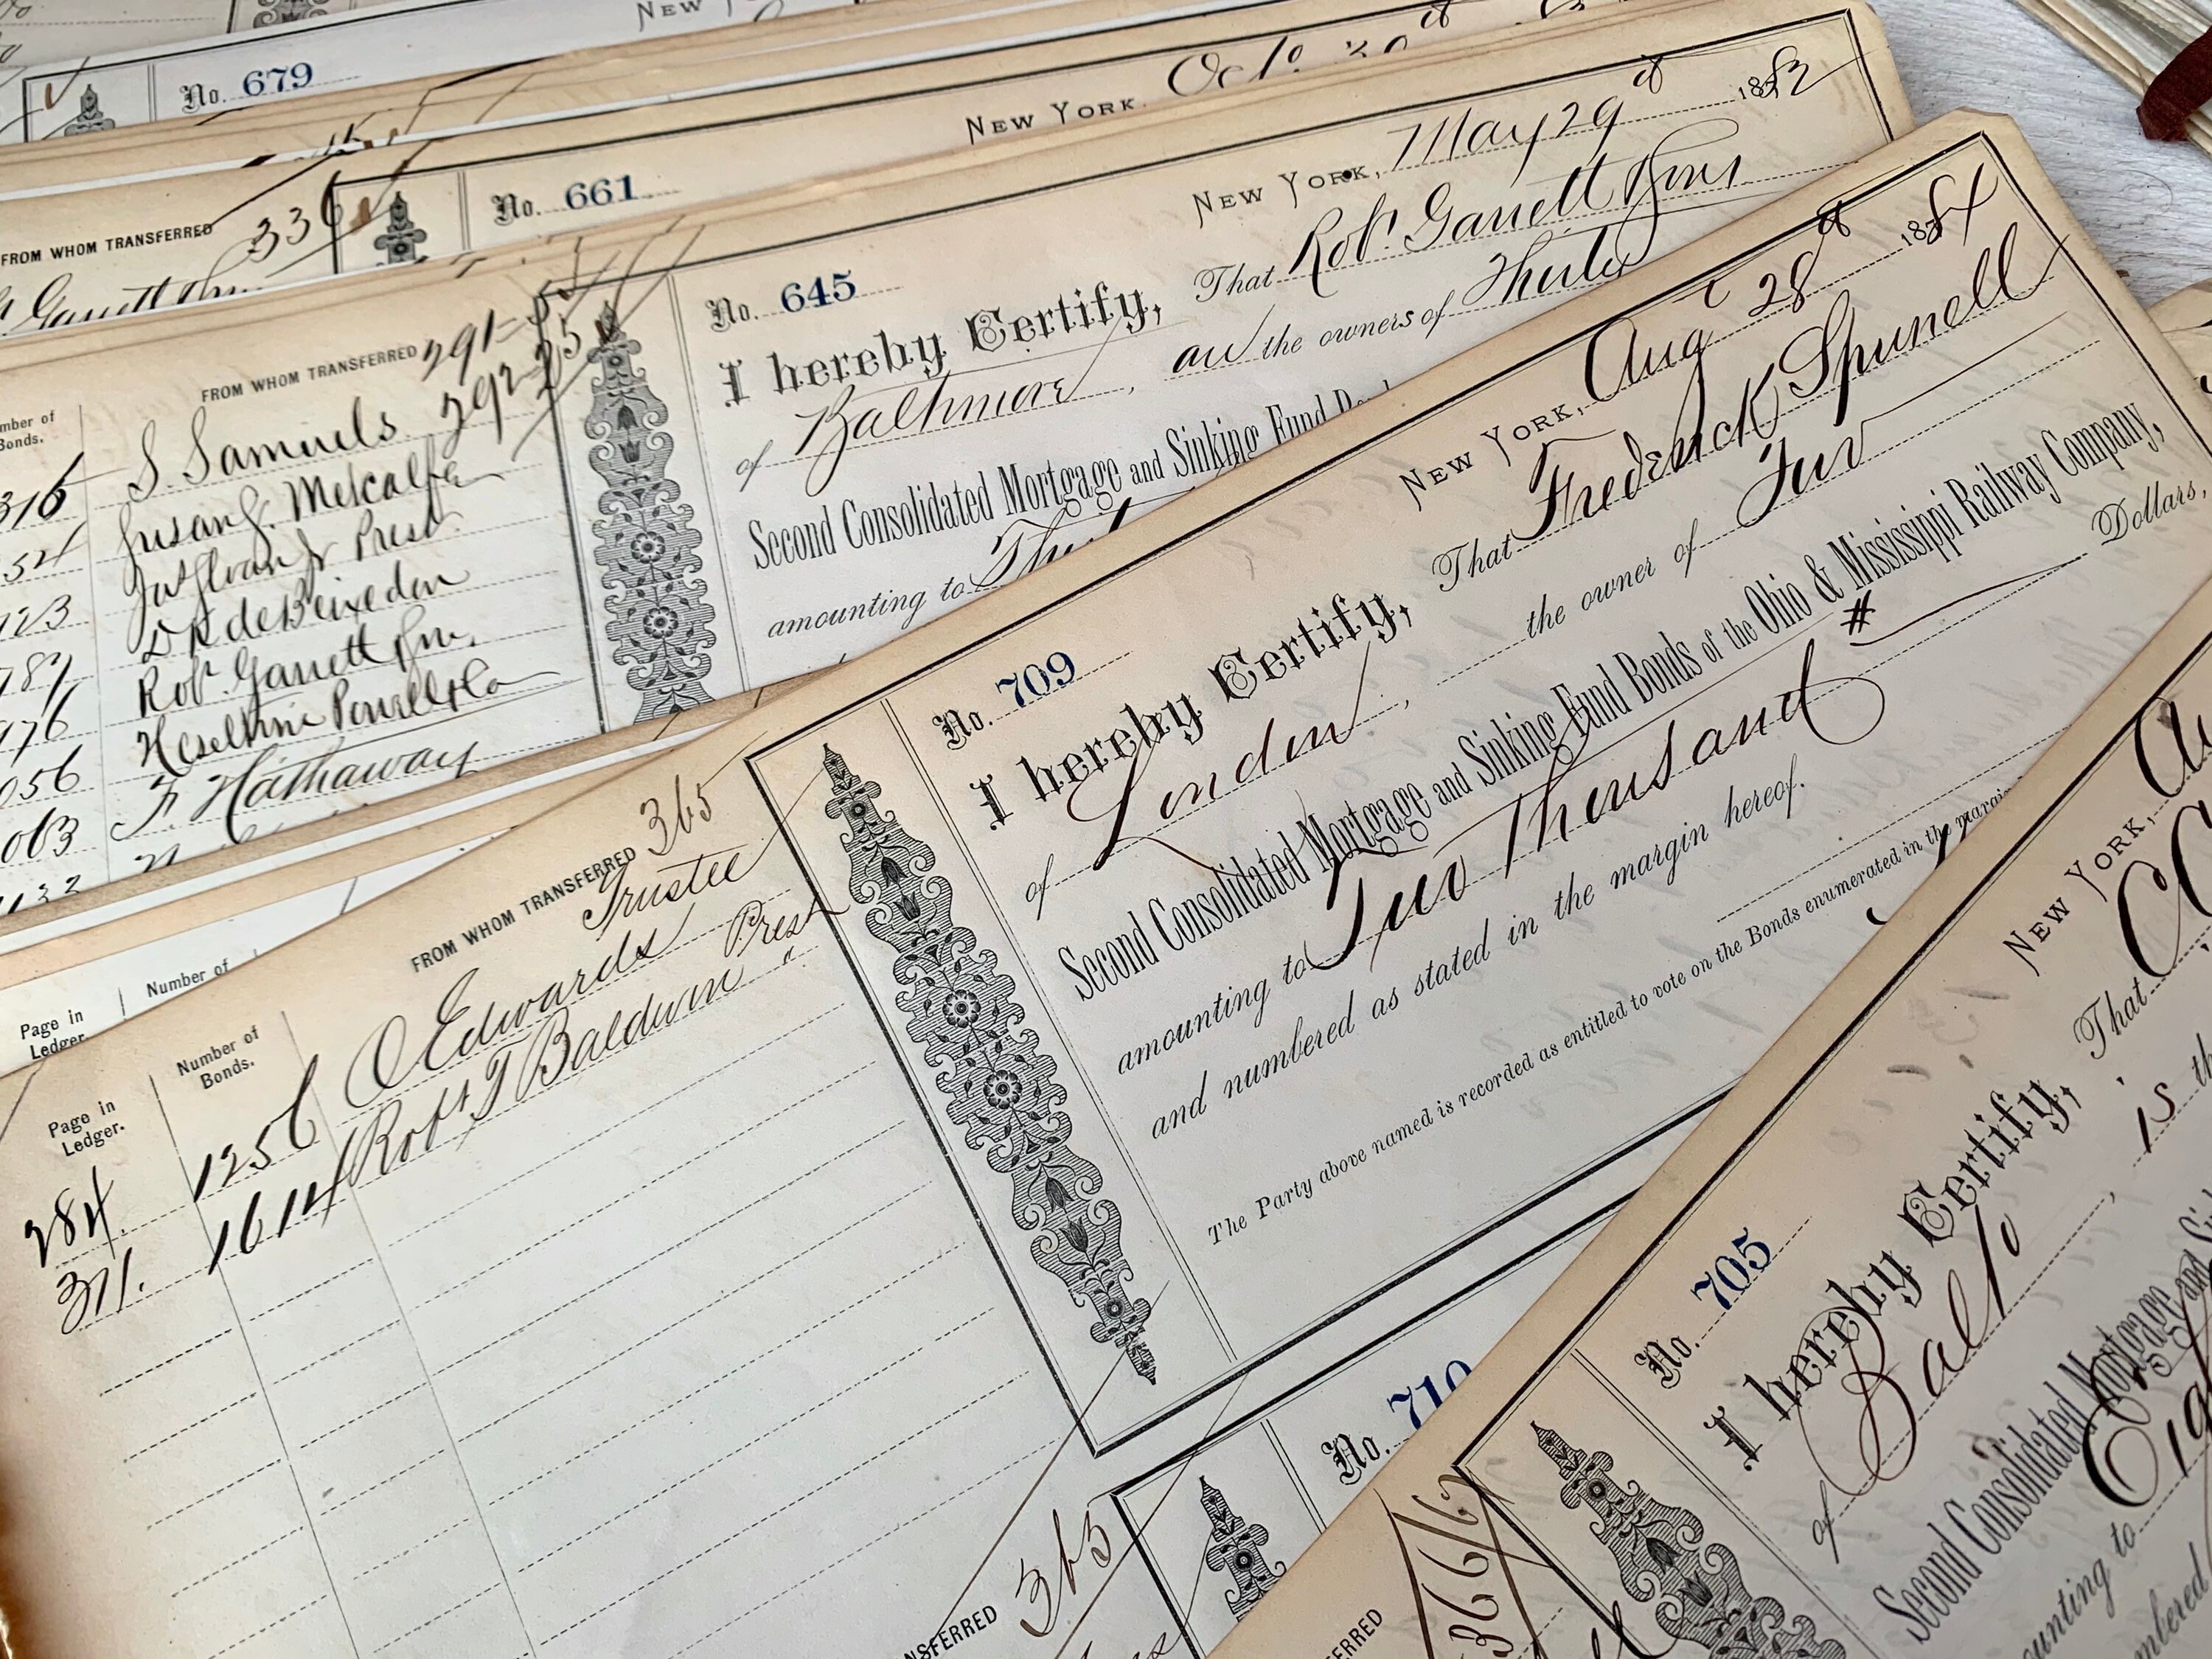 NEW
No. 679
NEW YORK.
No. 661
FROM WHOM TRANSFERRED 336
NEW YORK, May 29th 1883
No. 645
I hereby Certify, That Robt. Garrett & Sons
of Baltimore, are the owners of Thirty
Second Consolidated Mortgage and Sinking Fund
amounting to
FROM WHOM TRANSFERRED 291
292
mber of
Bonds.
S. Samuels
Susan J. Metcalfe
Prest.
Robt. Garrett & Sons.
Heseltine Powell & Co
056 F. Hathaway
063
Number of
Page in
Ledger.
NEW YORK, Aug 28th 1884
No. 709
I hereby Certify, That Frederick Spunell
of London, the owner of Two
Second Consolidated Mortgage and Sinking Fund Bonds of the Ohio & Mississippi Railway Company,
amounting to Two Thousand # Dollars,
and numbered as stated in the margin hereof.
The Party above named is recorded as entitled to vote on the Bonds enumerated in the margin
FROM WHOM TRANSFERRED 365
Page in
Ledger.
Number of
Bonds.
Trustee
284. 1256 O Edwards Prest
371. 1614 Robt T Baldwin "
No. 710
NSFERRED 365
NEW YORK,
No. 705
I hereby Certify, That
of Balto, is th
Second Consolidated Mortgage and Si
ounting to Eig
mbered
ERRED 366/6